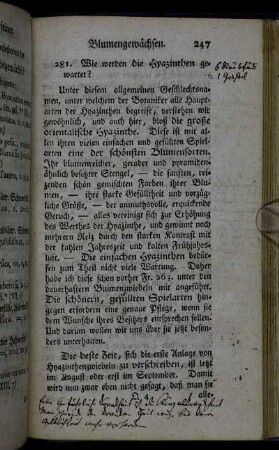 Blumengewächsen. 247
281. Wie werden die Hyazinthen ge-
wartet?
Unter diesem allgemeinen Geschlechtsna-
men, unter welchem der Botaniker alle Haupt-
arten der Hyazinthen begreift, verstehen wir
gewöhnlich, und auch hier, bloß die große
orientalische Hyazinthe. Diese ist mit al-
len ihren vielen einfachen und gefüllten Spiel-
arten eine der schönsten Blumensorten.
Ihr blumenreicher, gerader und pyramiden-
ähnlich besetzter Stengel, — die sanften, rei-
zenden schön gemischten Farben ihrer Blu-
men, — ihre starke Gefülltheit und vorzüg-
liche Größe, — der anmuthsvolle, erquickende
Geruch, — alles vereinigt sich zur Erhöhung
des Werthes der Hyazinthe, und gewinnt noch
mehrern Reiz durch den starken Kontrast mit
der kahlen Jahreszeit und kalten Frühjahrs-
luft. — Die einfachen Hyazinthen bedür-
fen zum Theil nicht viele Wartung. Daher
habe ich diese schon vorher Fr. 262. unter den
dauerhaftern Blumenzwiebeln mit angeführt.
Die schönern, gefüllten Spielarten hin-
gegen erfordern eine genaue Pflege, wenn sie
dem Wunsche ihres Besitzers entsprechen sollen.
Und darum wollen wir uns über sie jetzt alles
besonders unterhalten.
Die beste Zeit, sich die erste Anlage von
Hyazinthenzwiebeln zu verschreiben, ist letzt
im August oder erst im September. Damit
wird nun zwar eben nicht gesagt, daß man sie
alle